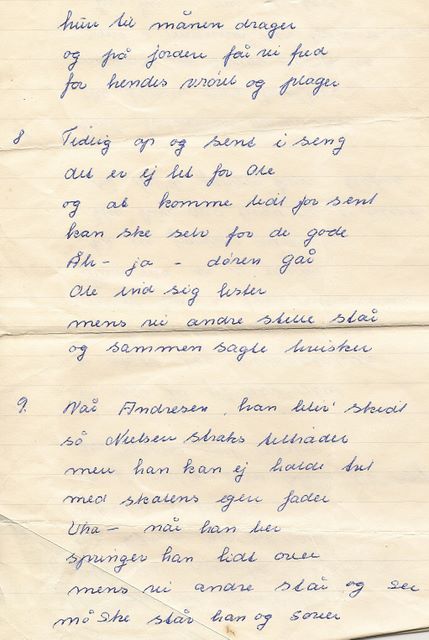 hun til månen drager
og på jorden får vi fred
for hendes vrövl og plager
8 Tidlig op og sent i seng
det er ej let for Ole
og at komme lidt for sent
kan ske selv for de gode
Åh - ja - dören går
Ole ind sig lister
mens vi andre stille står
og sammen sagte hvisker
9. Når Andresen, han blir' skidt
så Nielsen straks tiltræder
men han kan ej holde trit
med skolens egen fader
Uha - når han ler
springer han lidt over
mens vi andre står og ser
må ske står han og sover